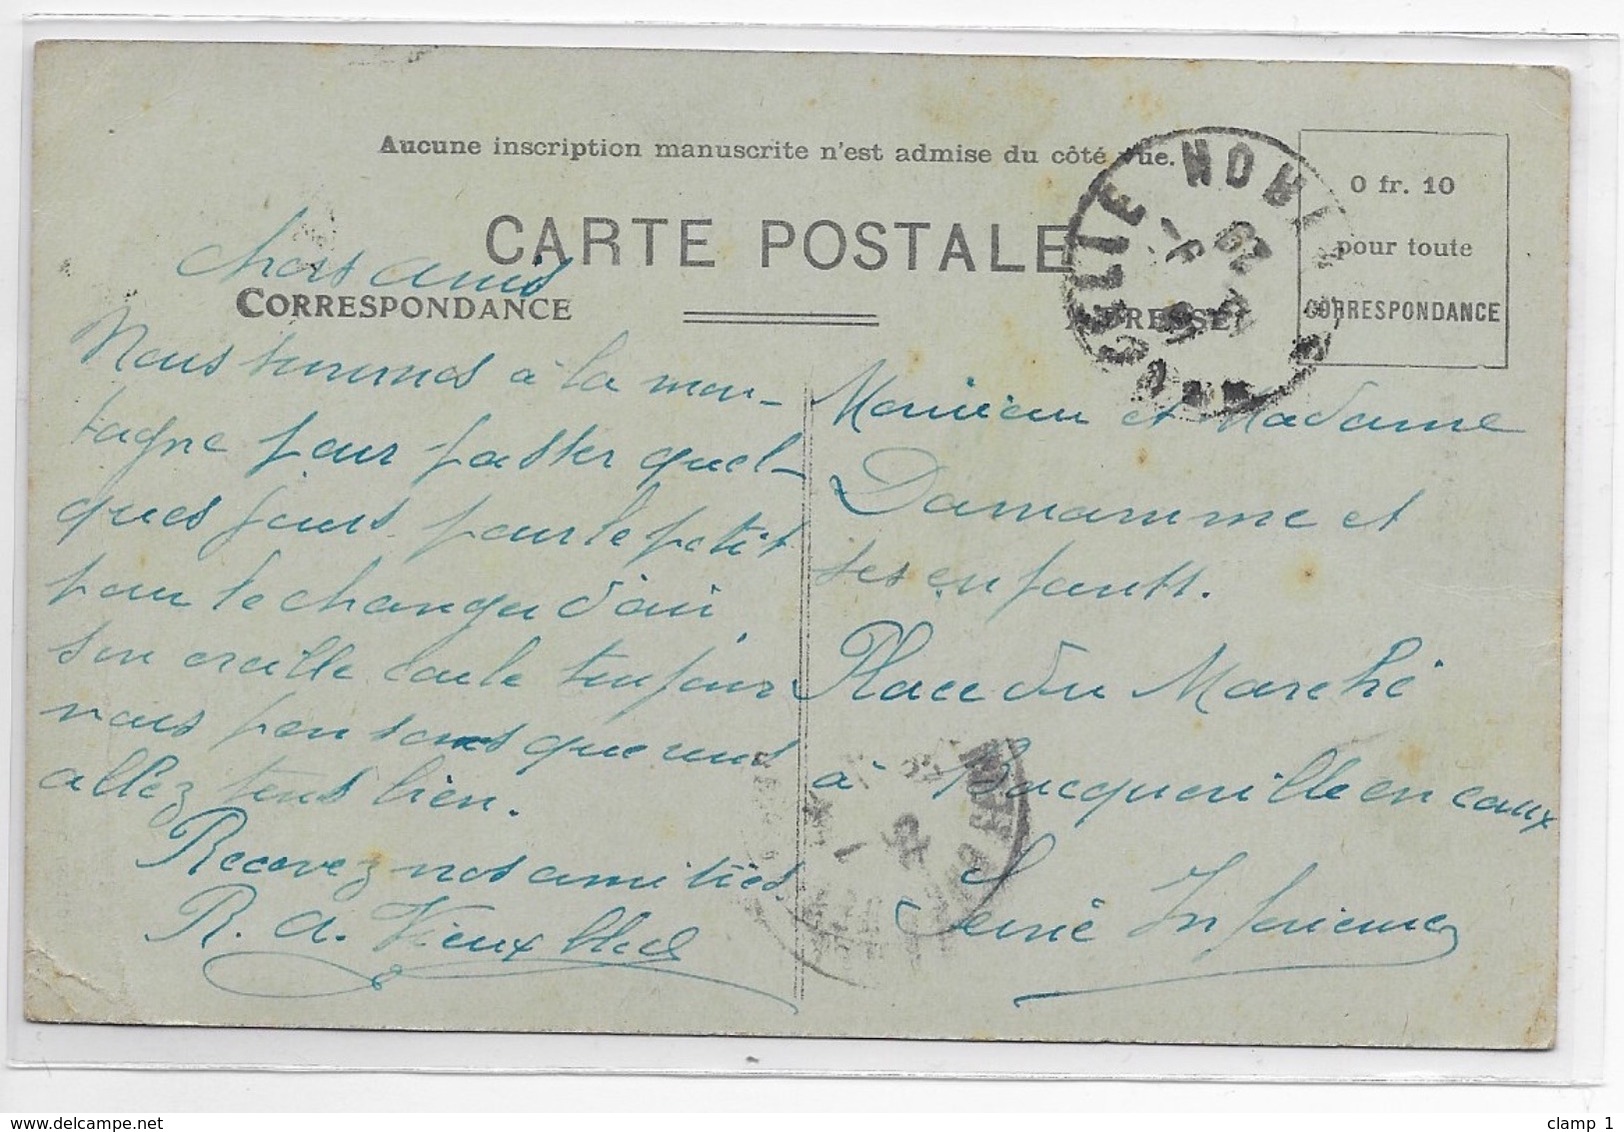 Aucune inscription manuscrite n'est admise du côté vue.
CARTE POSTALE
0 fr. 10
pour toute
CORRESPONDANCE
CORRESPONDANCE
ADRESSE
chers amis
Nous sommes à la mon-
tagne pour passer quel-
ques jours pour le petit
pour le changer d'air,
son oreille coule toujours
nous pensons que vous
allez tous bien.
Recevez nos amitiés
R. A. Vieux
Monsieur et Madame
Damamme et
ses enfants.
Place du Marché
à Bacqueville en caux
Seine Inférieure
clamp 1